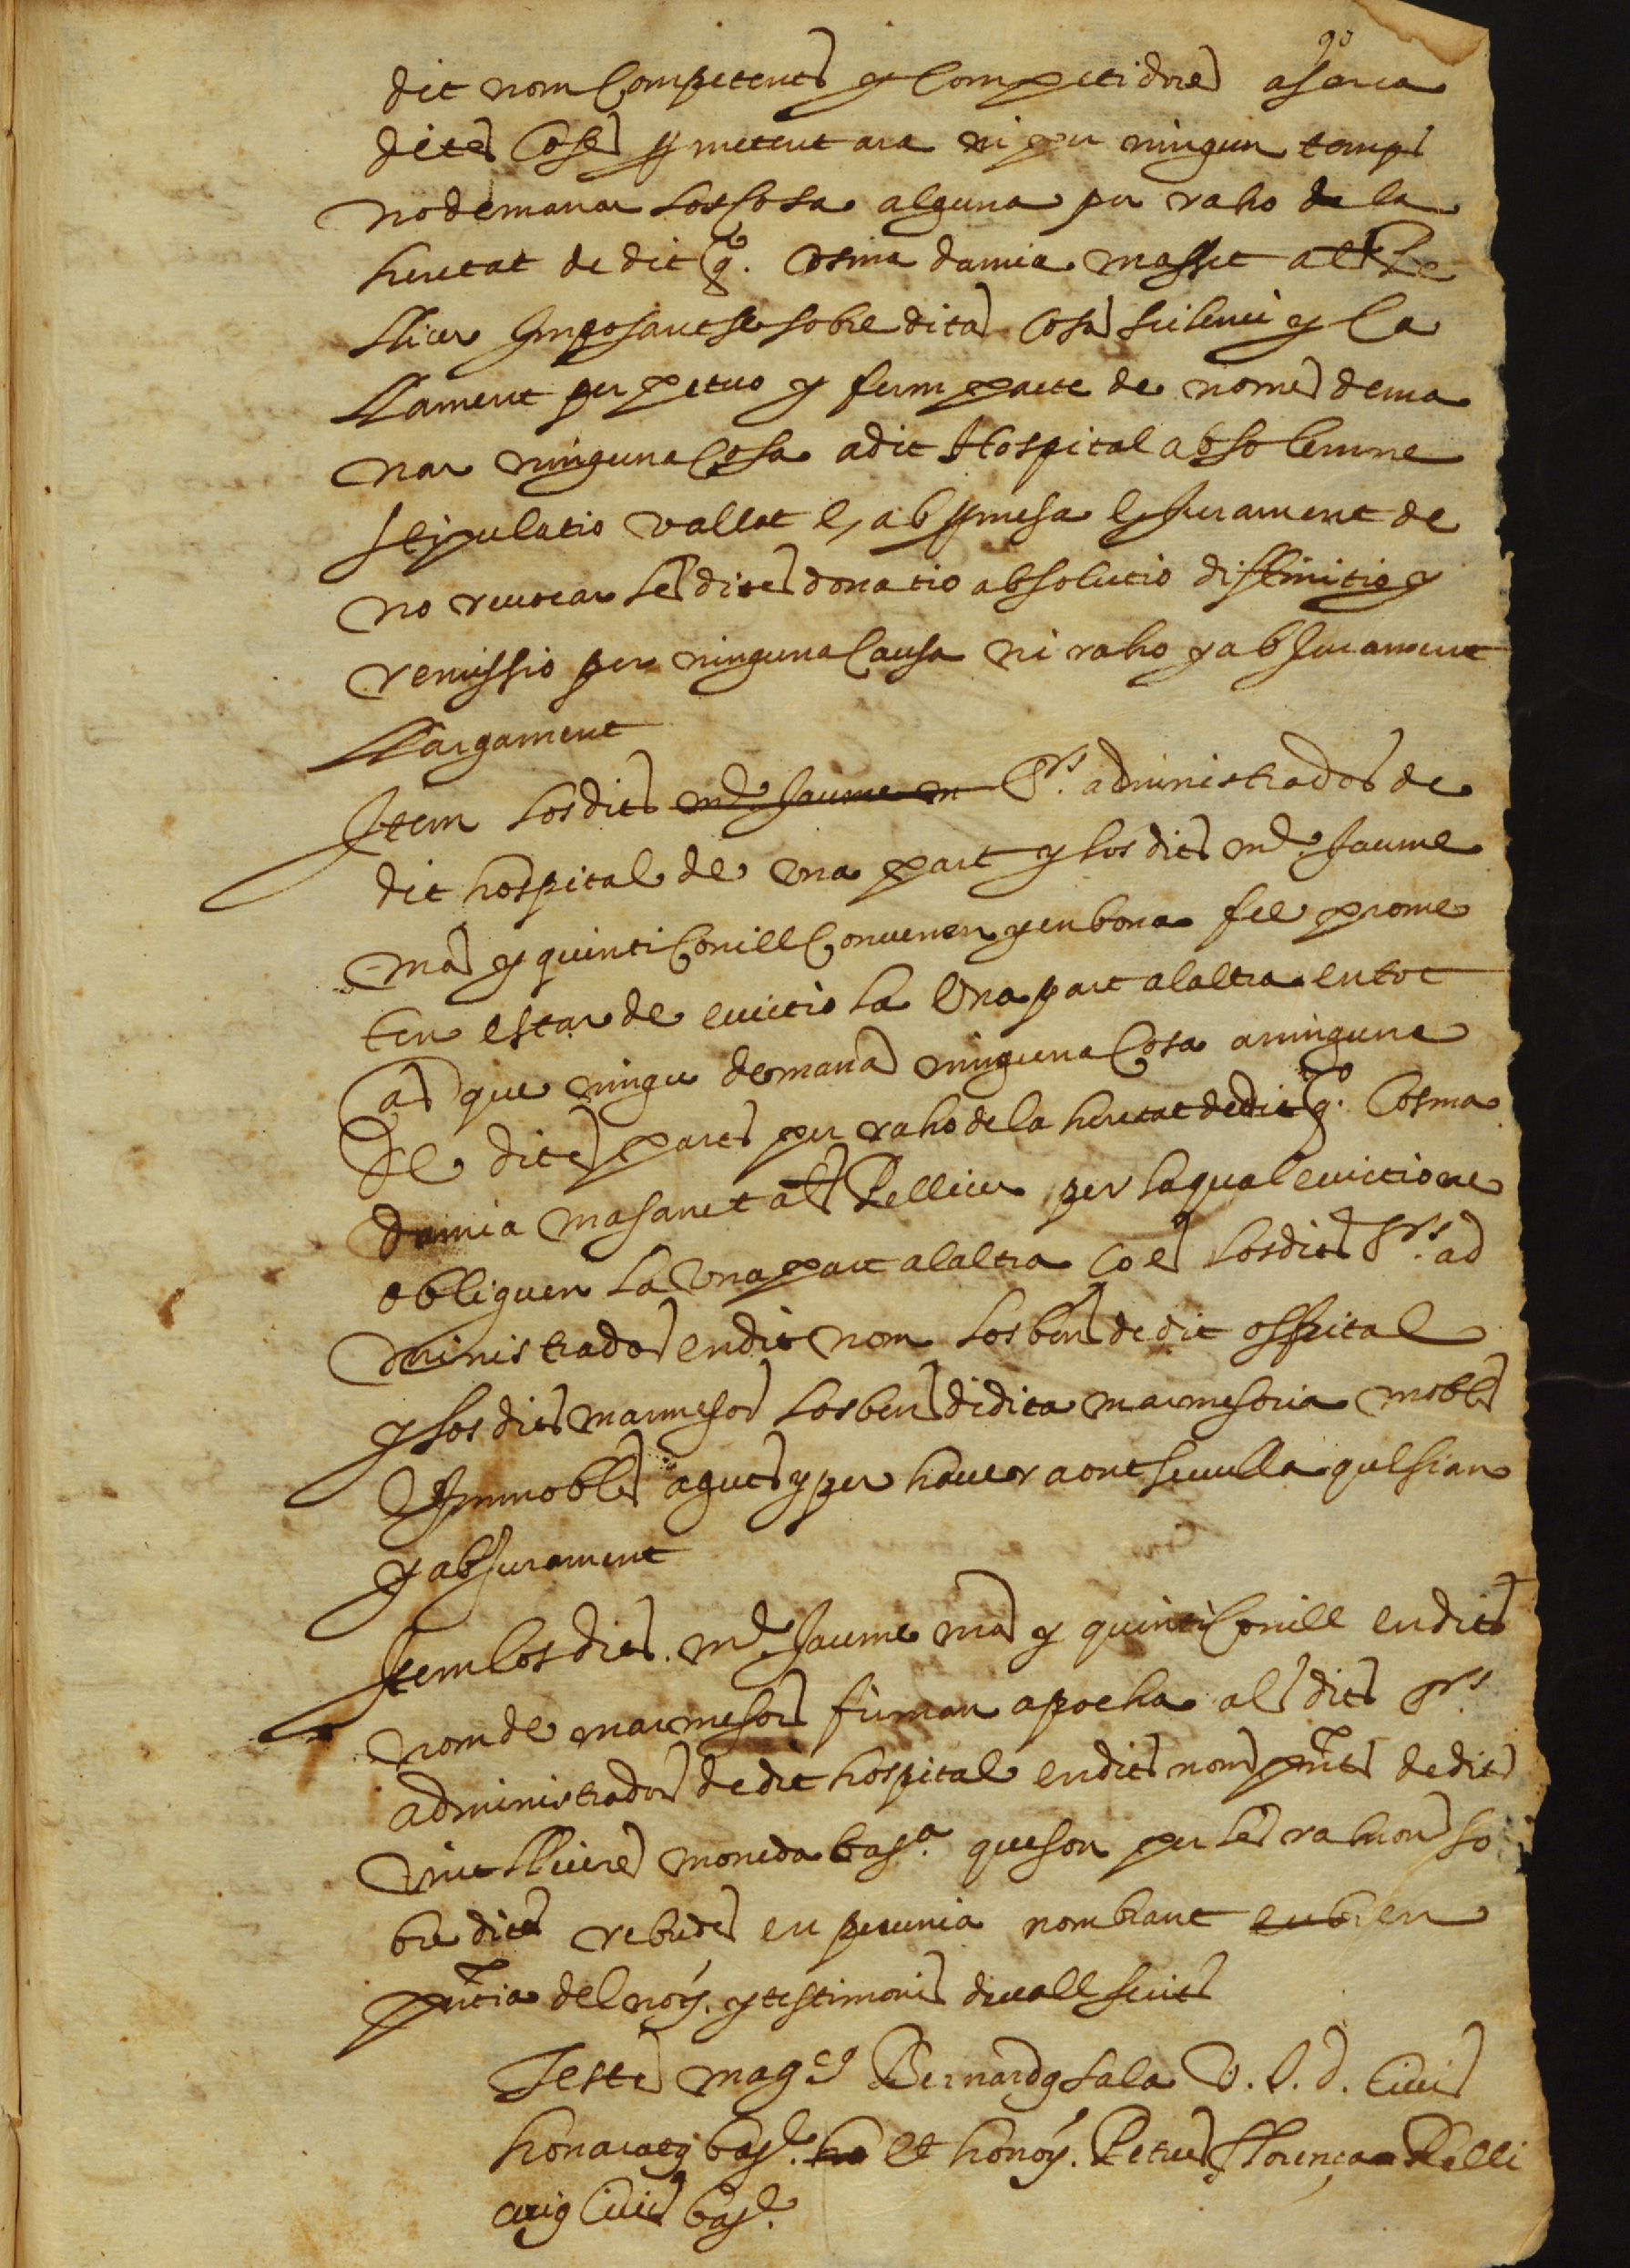 dit nom Competents y Competidores aserca
dites Coses pmetent ara ni per ningun temps
no demanar los Cosa alguna per raho de la
heretat de dit qº. Cosma damia masset als Pe
llicer Imposantse sobre ditas Cosas silenci y Ca
llament perpetuo y ferm pacte de nomes dema
nar ninguna Cosa a dit Hospital ab solemne
stipulatio vallat e, ab pmesa e, Jurament de
no revocar les dites donatio absolutio diffinitio y
remissio per ninguna Causa ni raho y ab Jurament
llargament
Item los dits md. Jaume m Srs. administrados de
dit hospital de una part y los dits md. Jaume
mas y quinti Conill Convenen y en bona fee prome
ten estar de evictio la Una part a laltra en tot
Cas que ningu demanas ninguna Cosa a ninguna
de dites parts per raho de la heretat de dit qº. Cosma
damia masanet als Pellicer per la qual evictione
obliguen la una part a laltra Co es los dits Srs. ad
ministrados en dit nom los bens de dit ospital
y los dits marmesos los bens di dita marmesoria mobles
e Immobles aguts y per haver a ont sevulla quelsian
y ab Jurament
Item los dits. md. Jaume mas y quinti Conill en dits
nom de marmesors firman apocha als dits Srs.
administrados de dit hospital en dits noms pnts de dits
vint lliures moneda barª. que son per les rahons so
bredites rebudes en pecunia nombrant en bren
pntia del noy. y testimonis devall scrits
Testes magcs Bernardq sala V. J. d. Civis
honoratq bars. ho et honoy. Petrus Florença Pelli
cerig Civis bars.